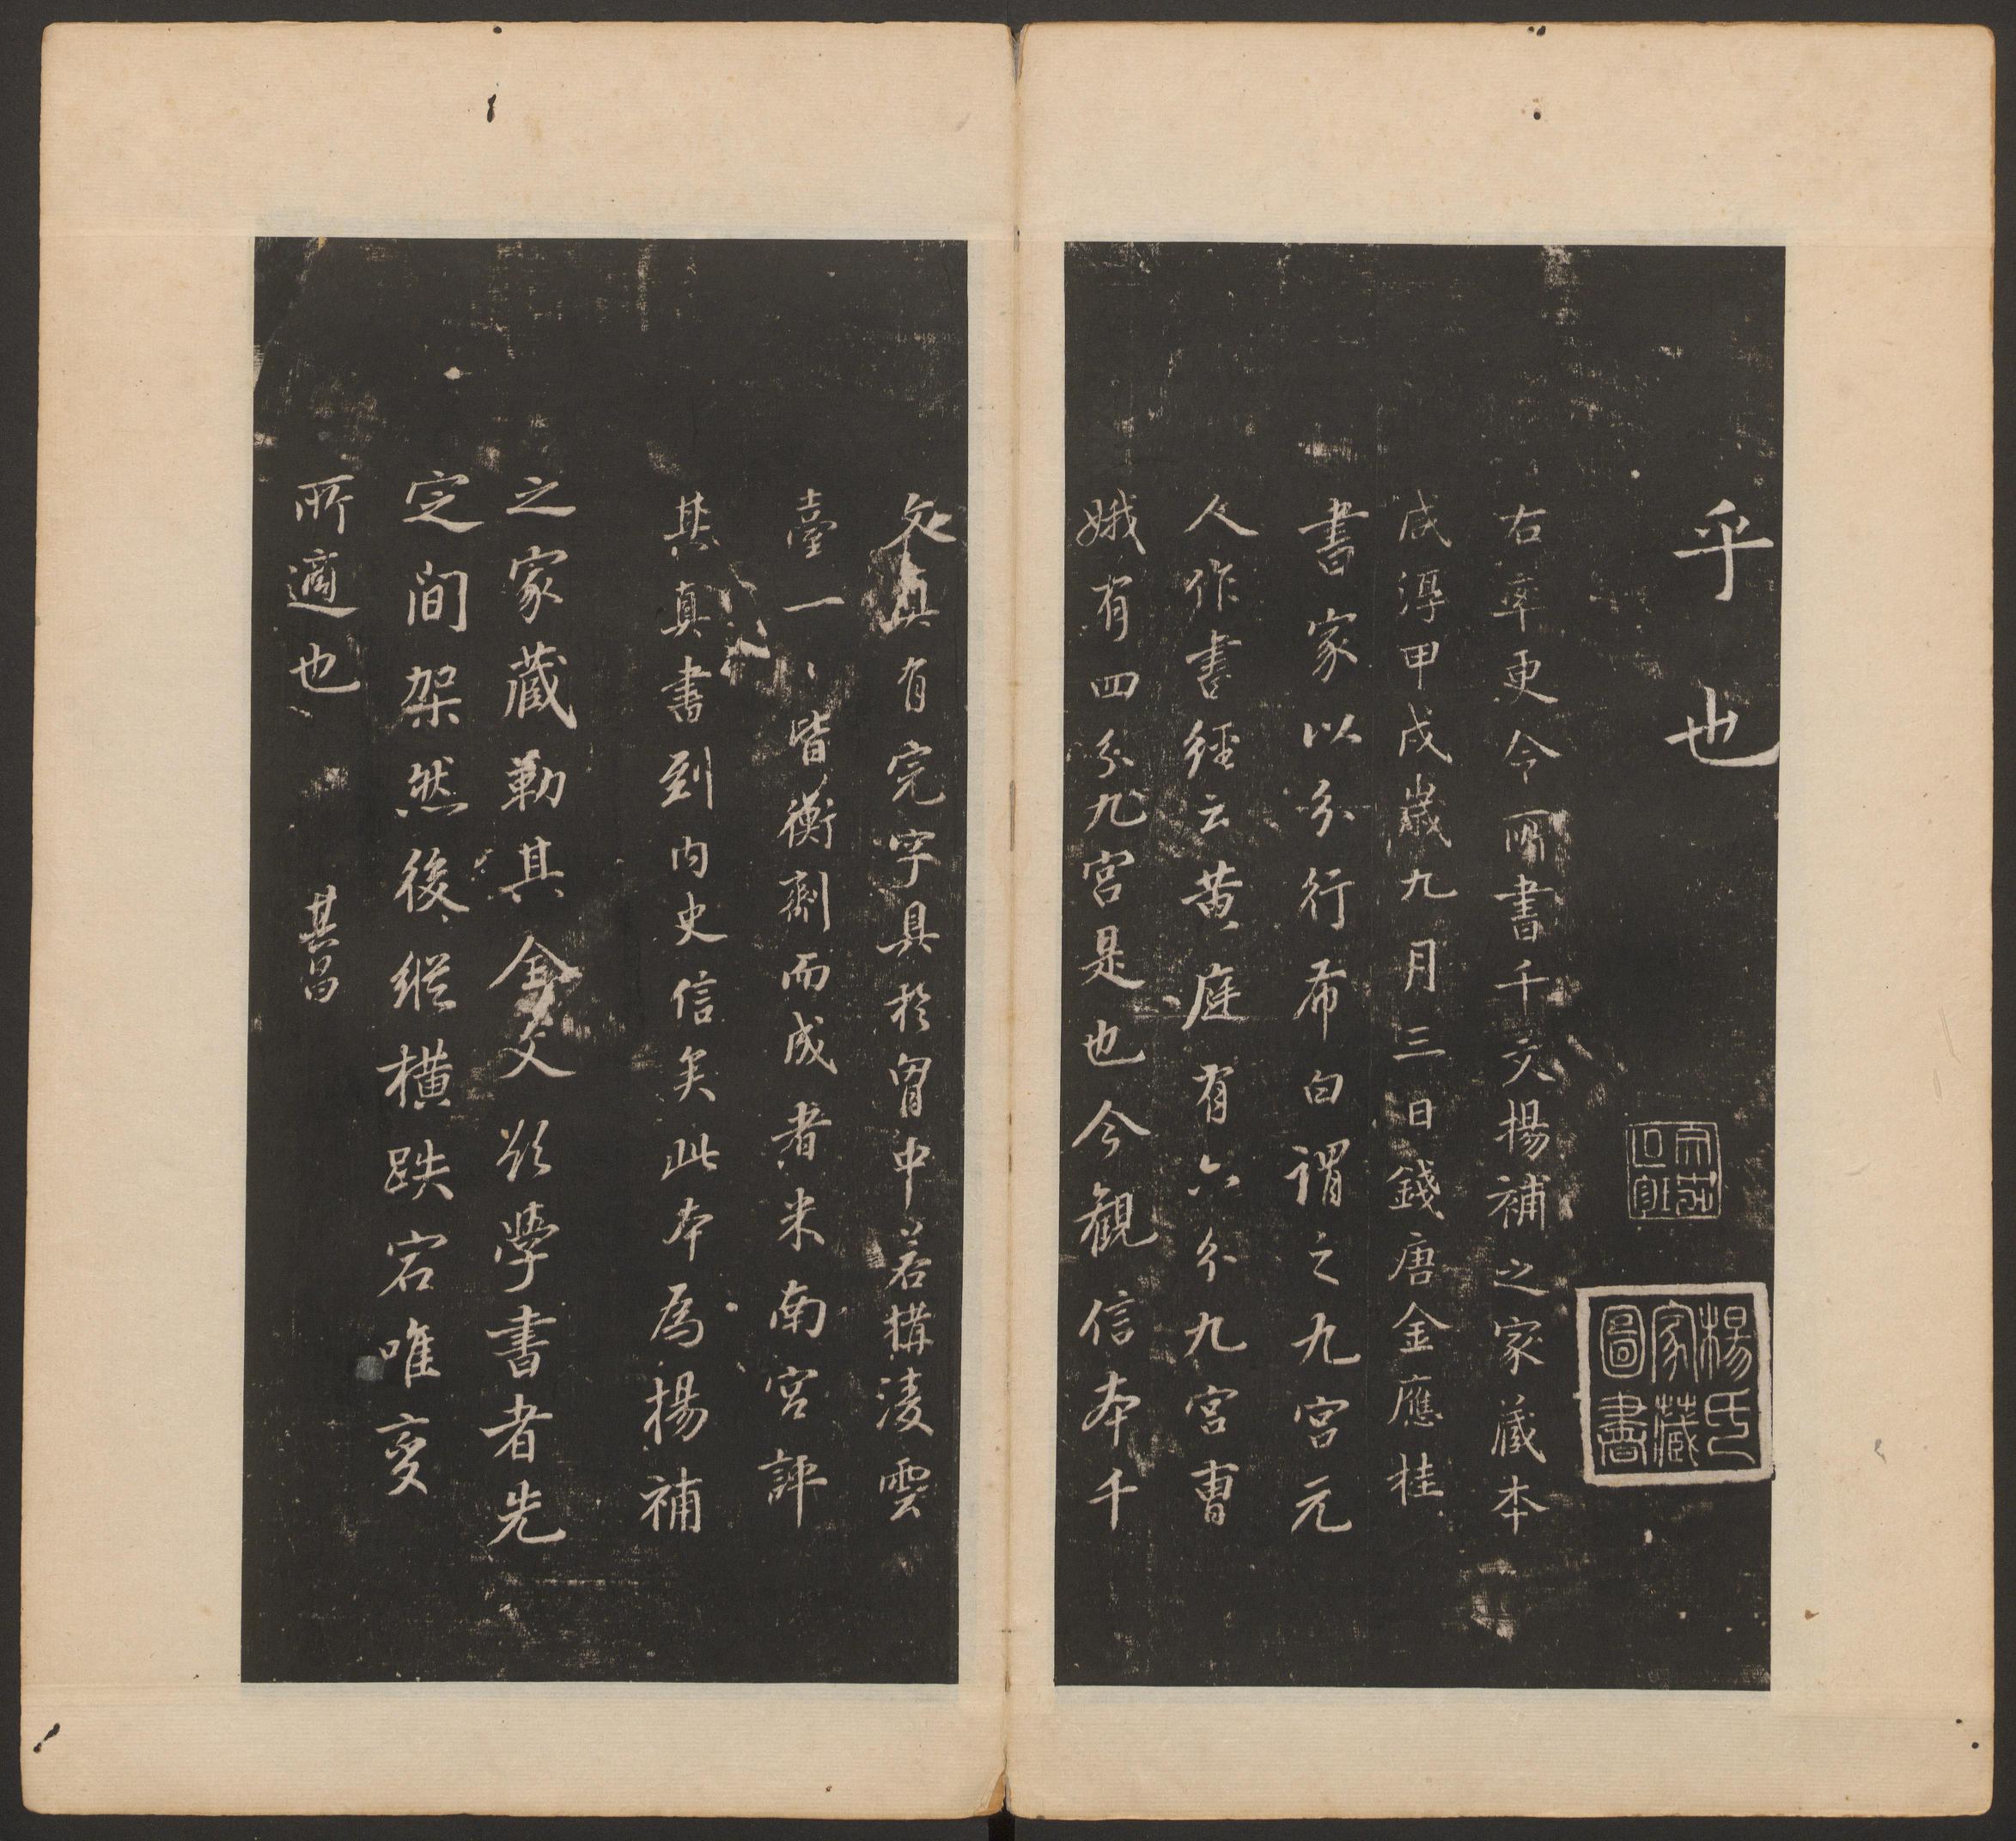 乎也
楊氏家藏圖書
右率更令所書千文楊補之家藏本
咸淳甲戌歲九月三日錢唐金應桂
書家以分行布白謂之九宮元
人作書經云黃庭有六分九宮曹
娥有四分九宮是也今觀信本千
文真有完字具於胷中若構凌雲
臺一〻皆衡劑而成者米南宮評
其真書到內史信矣此本為楊補
之家藏勒其全文欲學書者先
定間架然後縱橫跌宕唯變
所適也
其昌